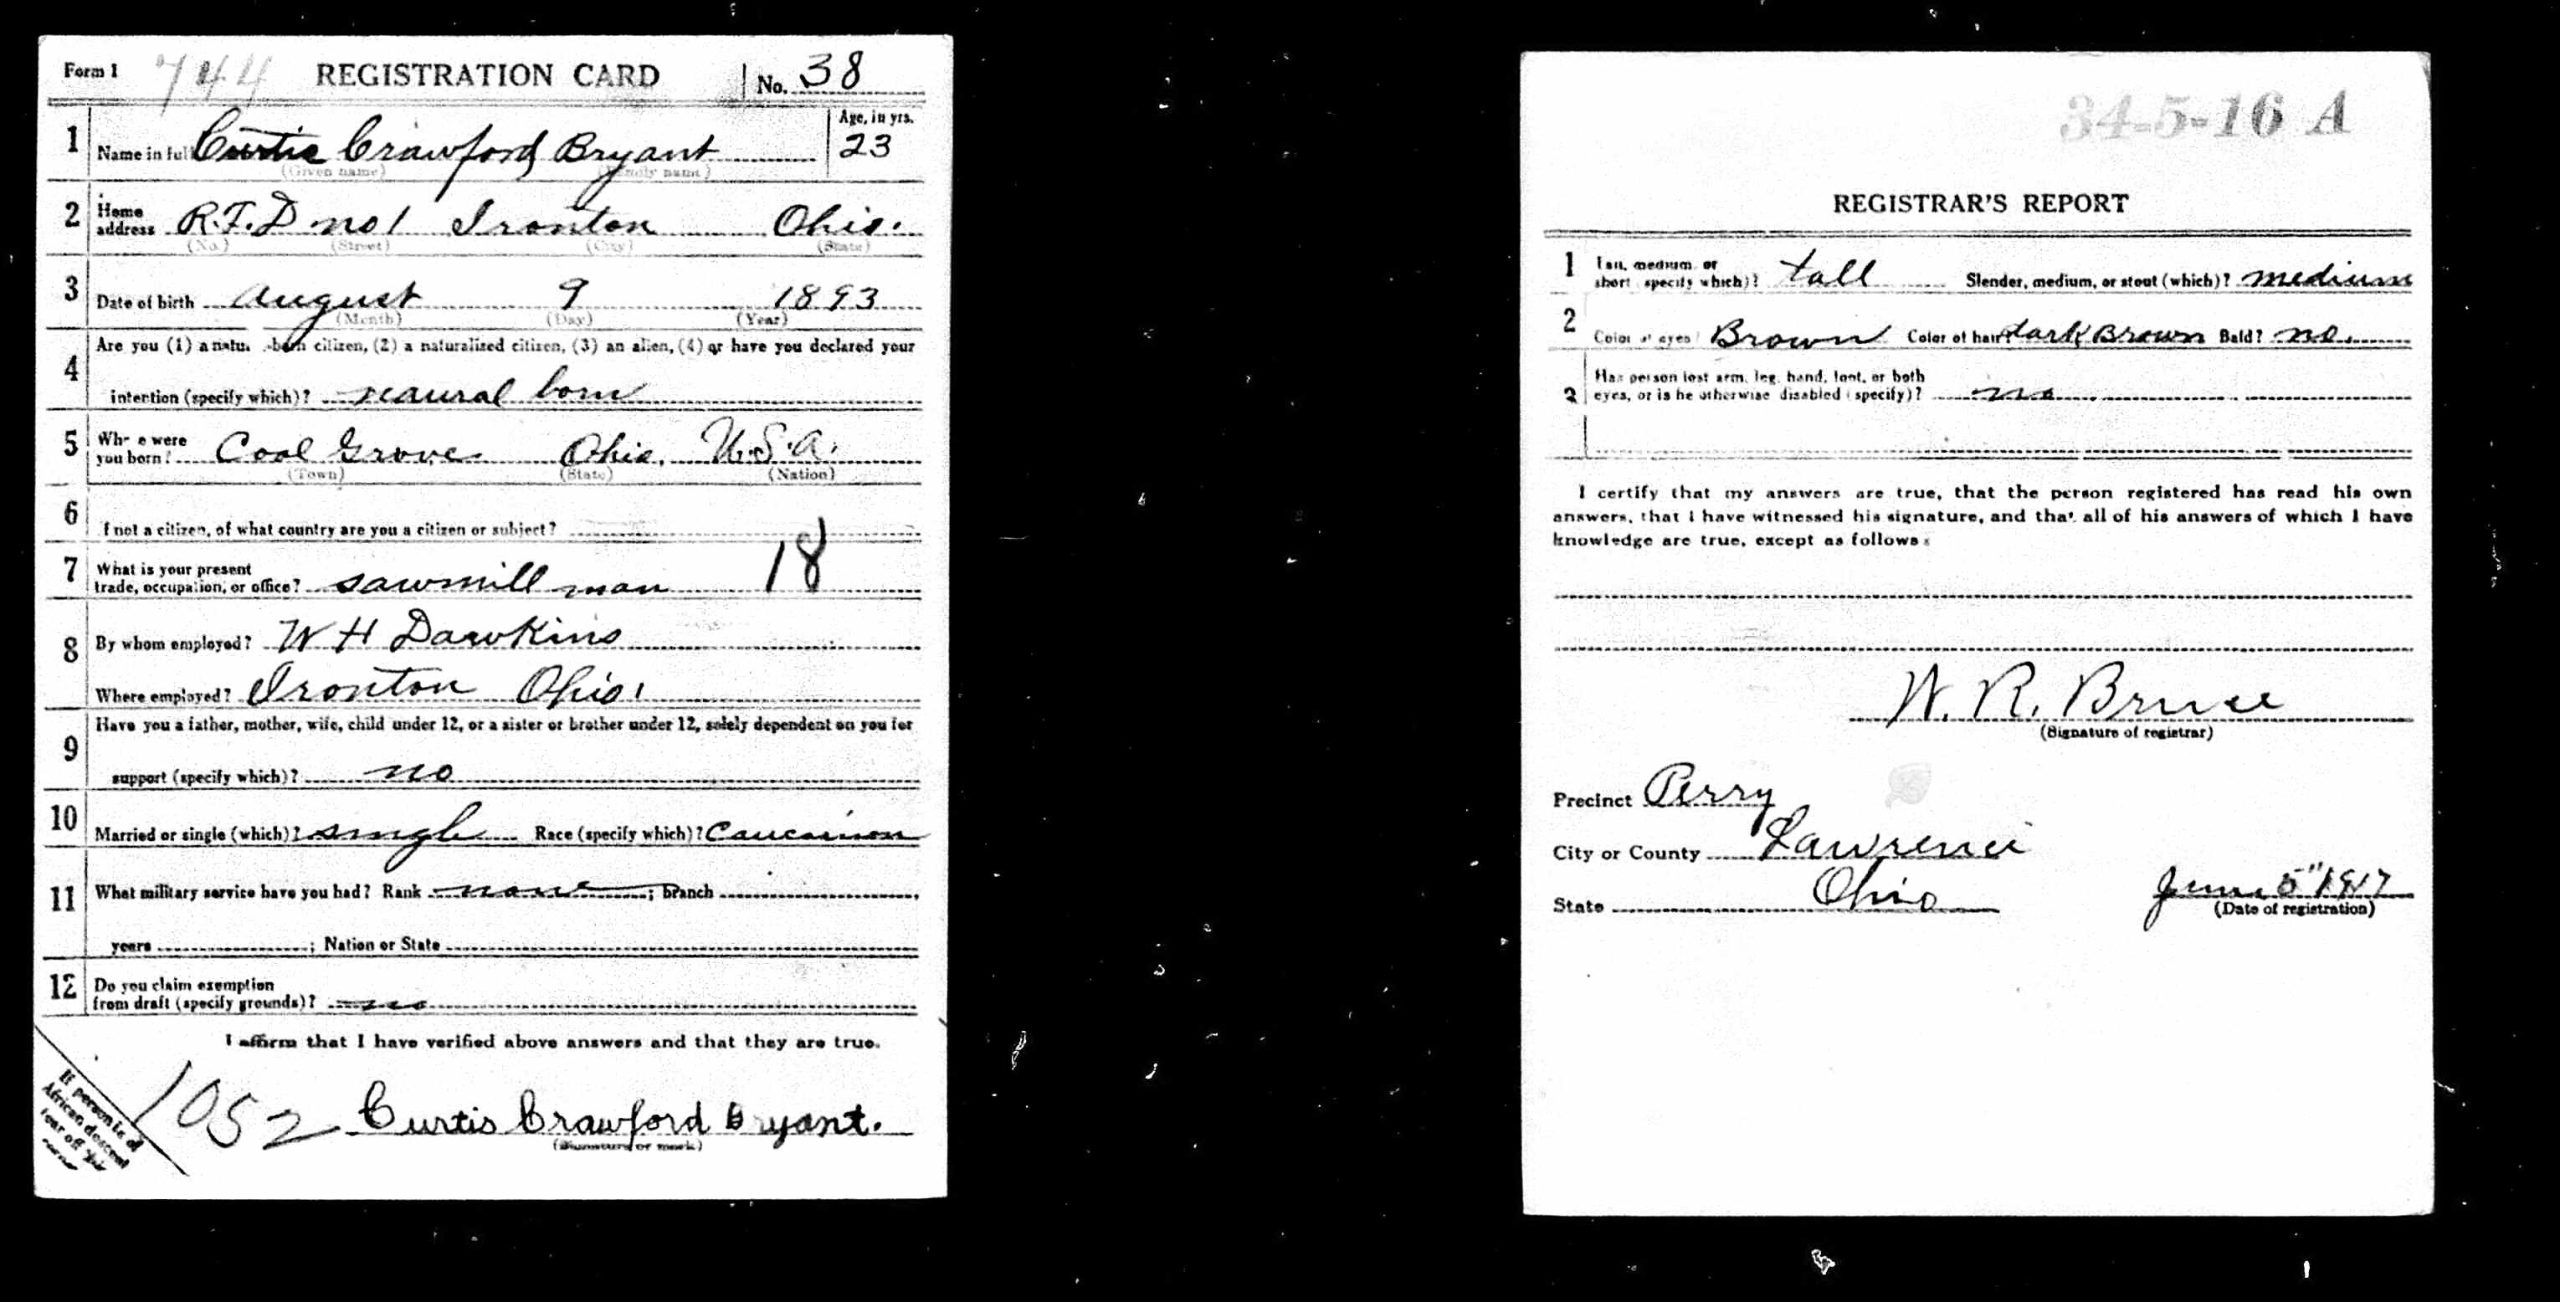 Form 1 744 REGISTRATION CARD No. 38
1 Name in full Curtis Crawford Bryant Age, in yrs. 23
(Given name) (Family name)
2 Home address R.F.D no 1 Ironton Ohio.
(No.) (Street) (City) (State)
3 Date of birth August 9 1893
(Month) (Day) (Year)
4 Are you (1) a natu -born citizen, (2) a naturalized citizen, (3) an alien, (4) or have you declared your
intention (specify which)? naural born
5 Where were you born? Coal Grove Ohio, U.S.A.
(Town) (State) (Nation)
6 If not a citizen, of what country are you a citizen or subject?
7 What is your present
trade, occupation, or office? sawmill man 18
8 By whom employed? W H Dawkins
Where employed? Ironton Ohio.
9 Have you a father, mother, wife, child under 12, or a sister or brother under 12, solely dependent on you for
support (specify which)? no
10 Married or single (which)? single Race (specify which)? Caucasion
11 What military service have you had? Rank none; branch
years ; Nation or State
12 Do you claim exemption
from draft (specify grounds)? no
I affirm that I have verified above answers and that they are true.
1052 Curtis Crawford Bryant.
(Signature or mark)
If person is of
African descent
tear off this
corner
34-5-16 A
REGISTRAR'S REPORT
1 Tall, medium, or
short (specify which)? tall Slender, medium, or stout (which)? medium
2 Color of eyes? Brown Color of hair? dark Brown Bald? no.
3 Has person lost arm, leg, hand, foot, or both
eyes, or is he otherwise disabled (specify)? no
I certify that my answers are true, that the person registered has read his own
answers, that I have witnessed his signature, and that all of his answers of which I have
knowledge are true, except as follows:
W. R. Bruce
(Signature of registrar)
Precinct Perry
City or County Lawrence
State Ohio June 5" 1917
(Date of registration)